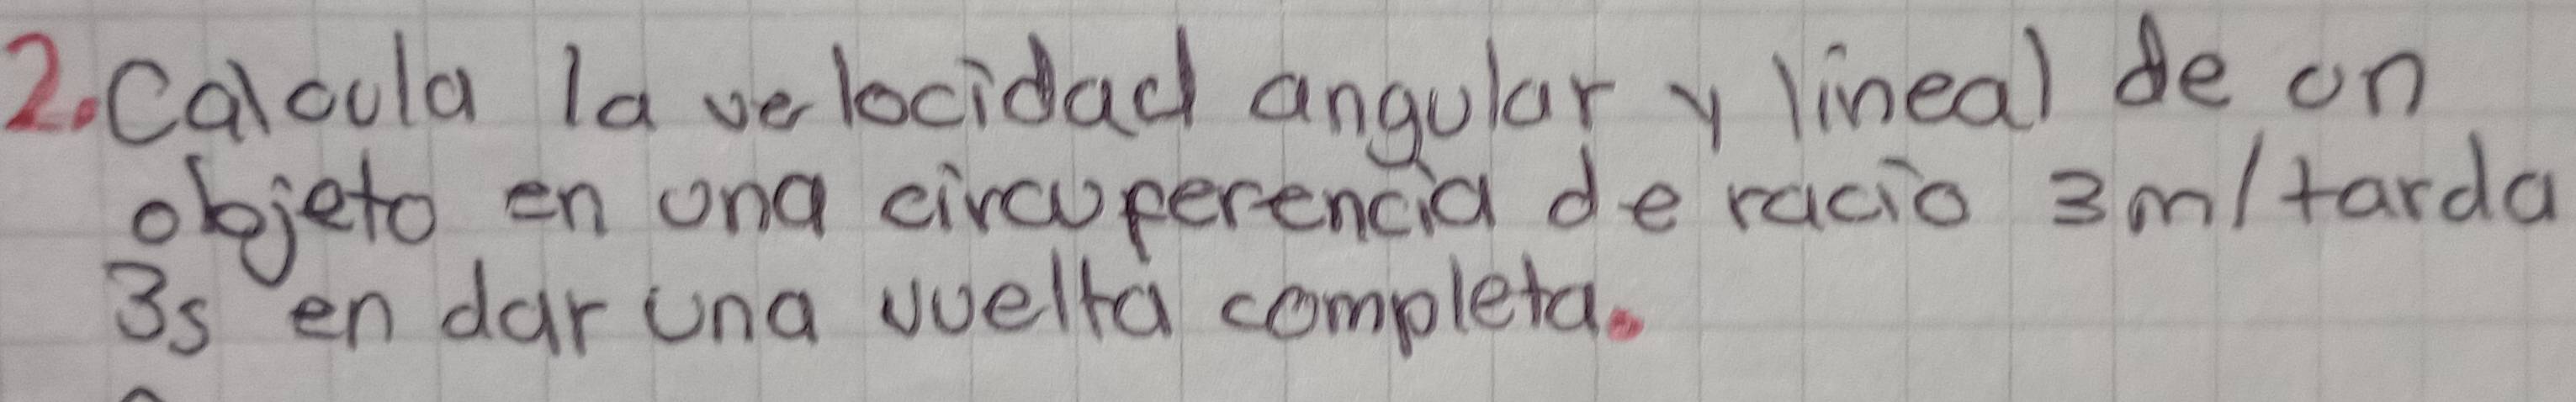 2. Calcula la velocidad angular y lineal de un
objeto en una circuferencia de racio 3m/tarda
3s en dar una vuelta completa.